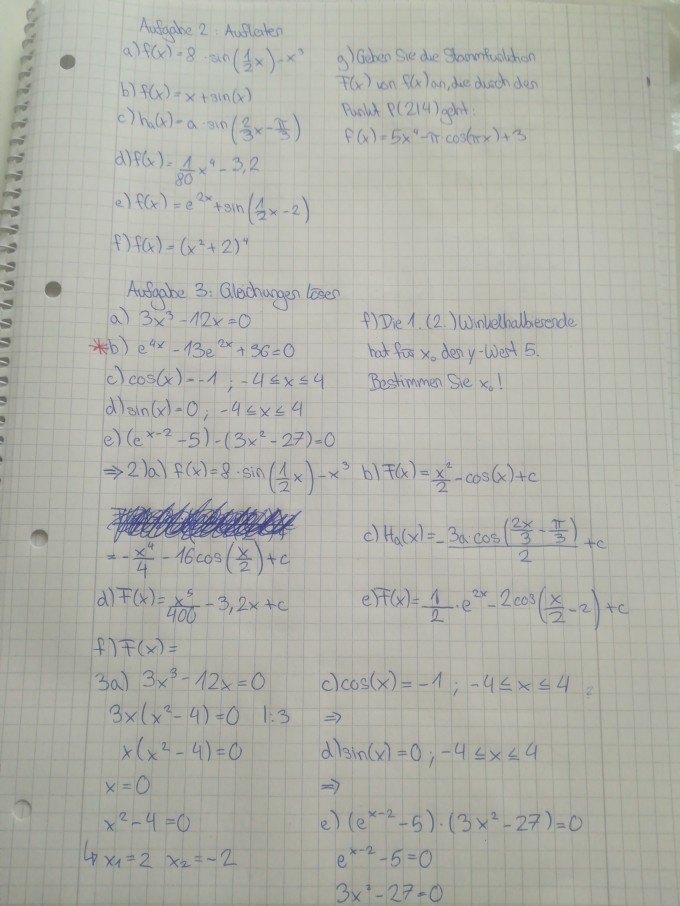 Aufgabe 2: Aufleiten
a) f(x) = 8 · sin(1/2 x) - x³
b) f(x) = x + sin(x)
c) hₐ(x) = a · sin(2/3 x - π/3)
d) f(x) = 1/80 x⁴ - 3,2
e) f(x) = e^(2x) + sin(1/2 x - 2)
f) f(x) = (x² + 2)⁴
g) Geben Sie die Stammfunktion
F(x) von f(x) an, die durch den
Punkt P(2|4) geht:
f(x) = 5x⁴ - π·cos(πx) + 3
Aufgabe 3: Gleichungen lösen
a) 3x³ - 12x = 0
*b) e^(4x) - 13e^(2x) + 36 = 0
c) cos(x) = -1 ; -4 ≤ x ≤ 4
d) sin(x) = 0 ; -4 ≤ x ≤ 4
e) (e^(x-2) - 5) · (3x² - 27) = 0
f) Die 1. (2.) Winkelhalbierende
hat für x₀ den y-Wert 5.
Bestimmen Sie x₀!
⇒ 2) a) f(x) = 8 · sin(1/2 x) - x³
= -x⁴/4 - 16cos(x/2) + c
b) F(x) = x²/2 - cos(x) + c
c) Hₐ(x) = -3a·cos(2x/3 - π/3)/2 + c
d) F(x) = x⁵/400 - 3,2x + c
e) F(x) = 1/2 · e^(2x) - 2cos(x/2 - 2) + c
f) F(x) =
3a) 3x³ - 12x = 0
3x(x² - 4) = 0 |:3
x(x² - 4) = 0
x = 0
x² - 4 = 0
↳ x₁ = 2 x₂ = -2
c) cos(x) = -1 ; -4 ≤ x ≤ 4
⇒
d) sin(x) = 0 ; -4 ≤ x ≤ 4
⇒
e) (e^(x-2) - 5) · (3x² - 27) = 0
e^(x-2) - 5 = 0
3x² - 27 = 0